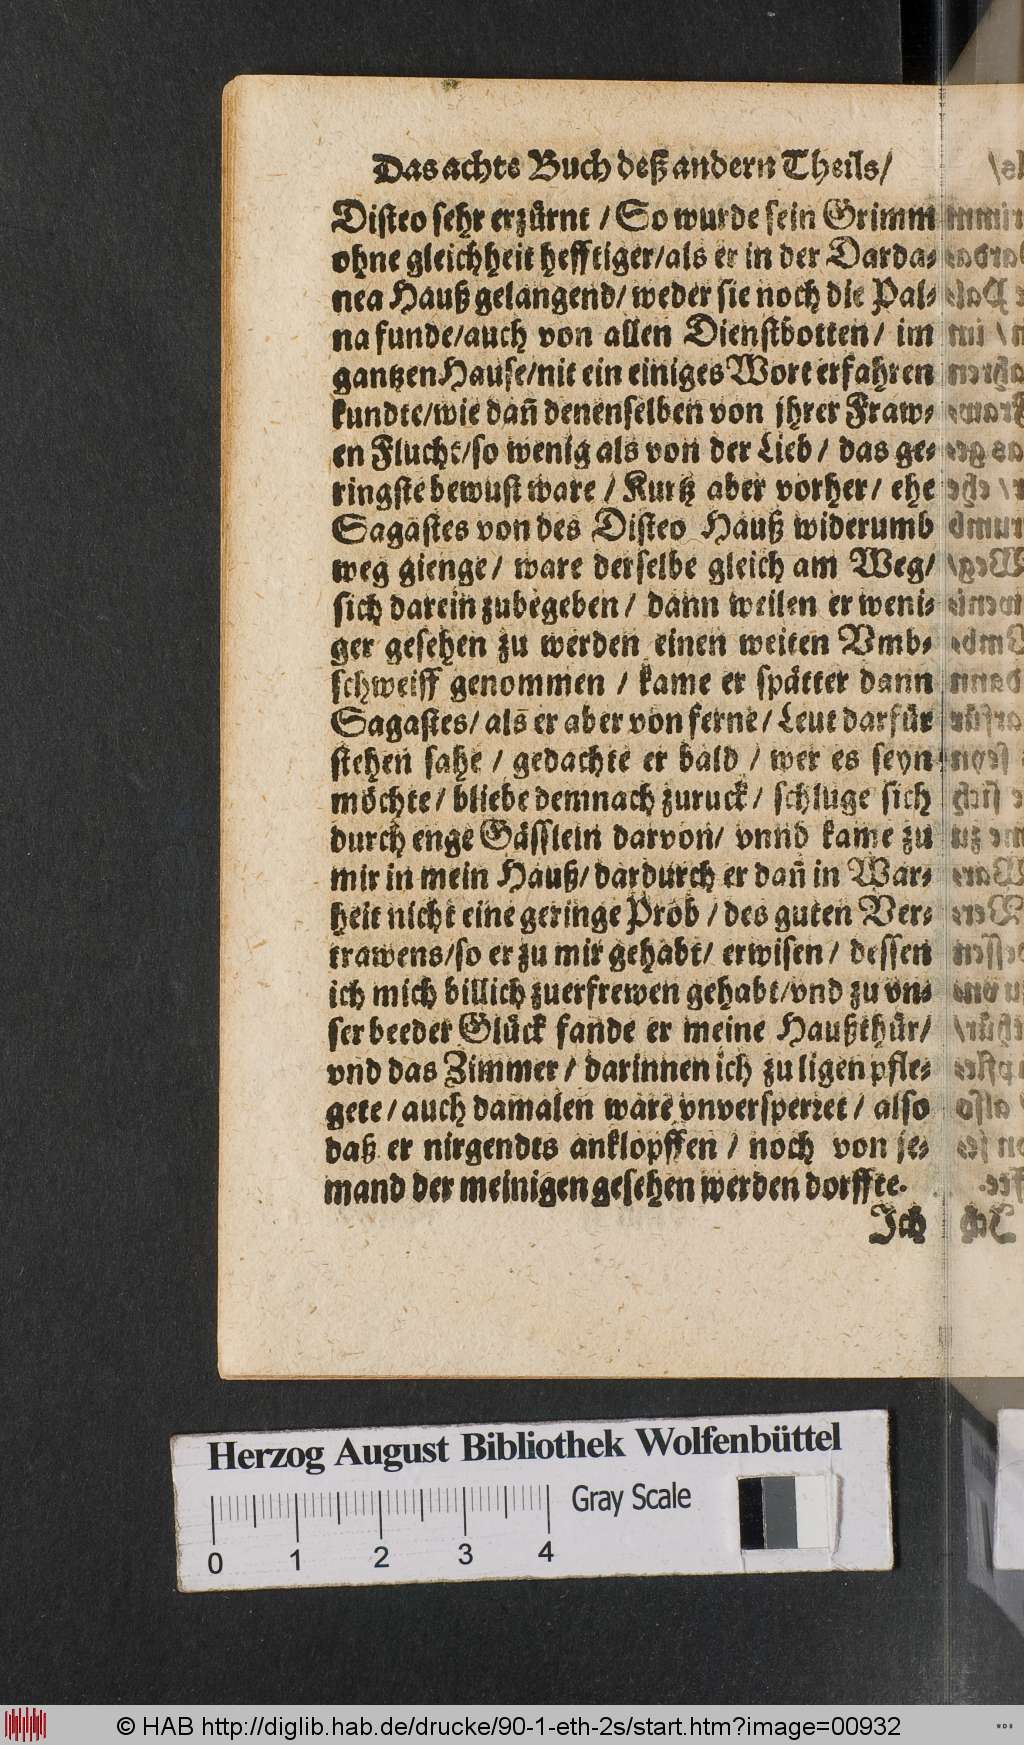 Das achte Buch deß andern Theils/
Disteo sehr erzürnt / So wurde sein Grimm
ohne gleichheit hefftiger/als er in der Darda-
nea Hauß gelangend/ weder sie noch die Pal-
na funde/auch von allen Dienstbotten/ im
gantzen Hause/nit ein einiges Wort erfahren
kundte/wie dañ denenselben von jhrer Fraw-
en Flucht/so wenig als von der Lieb / das ge-
ringste bewust ware / Kurtz aber vorher/ ehe
Sagastes von des Disteo Hauß widerumb
weg gienge/ ware derselbe gleich am Weg/
sich darein zubegeben/ dann weilen er weni-
ger gesehen zu werden einen weiten Vmb-
schweiff genommen / kame er spätter dann
Sagastes/ als er aber von ferne/ Leut darfür
stehen sahe / gedachte er bald / wer es seyn
möchte/ bliebe demnach zuruck/ schluge sich
durch enge Gässlein darvon/ vnnd kame zu
mir in mein Hauß/ dardurch er dañ in War-
heit nicht eine geringe Prob / des guten Ver-
trawens/so er zu mir gehabt/ erwisen/ dessen
ich mich billich zuerfrewen gehabt/vnd zu vn-
ser beeder Glück fande er meine Haußthür/
vnd das Zimmer/ darinnen ich zu ligen pfle-
gete/auch damalen ware vnversperret/ also
daß er nirgendts anklopffen / noch von je-
mand der meinigen gesehen werden dorffte.
Ich
Herzog August Bibliothek Wolfenbüttel
Gray Scale
0 1 2 3 4
© HAB http://diglib.hab.de/drucke/90-1-eth-2s/start.htm?image=00932